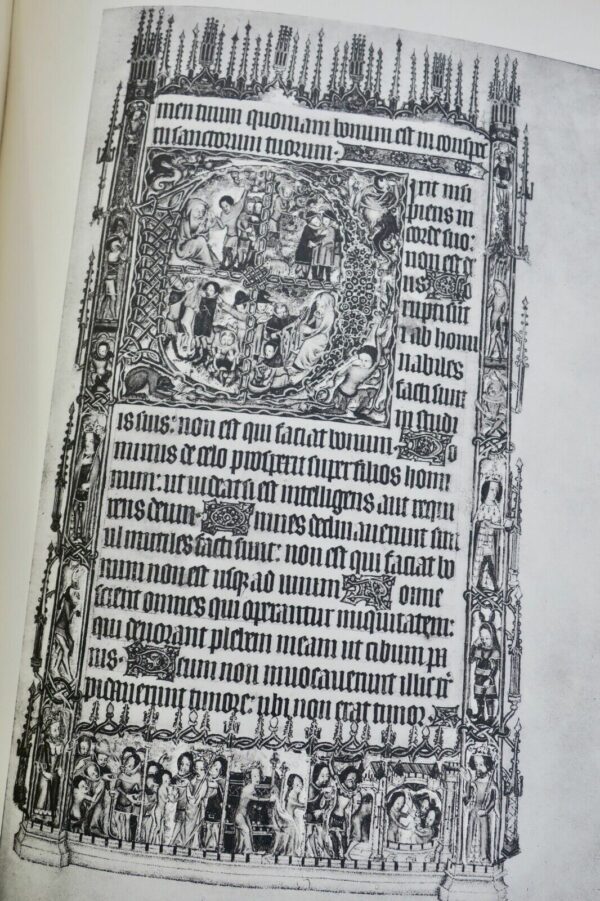 men tuum quoniam bonum est in conspec
tu sanctorum tuorum.
Dixit insi
piens in
corde suo:
non est de
us Co
rupti sunt
et abhomi
nabiles
facti sunt
in studi
is suis: non est qui faciat bonum. Do
minus de celo prospexit super filios homi
num: ut videat si est intelligens aut requi
rens deum. Omnes declinaverunt sim
ul inutiles facti sunt: non est qui faciat bo
num non est usque ad unum Nonne
scient omnes qui operantur iniquitatem:
qui devorant plebem meam ut cibum pa
nis. Deum non invocaverunt illic t
repidaverunt timore: ubi non erat timor.